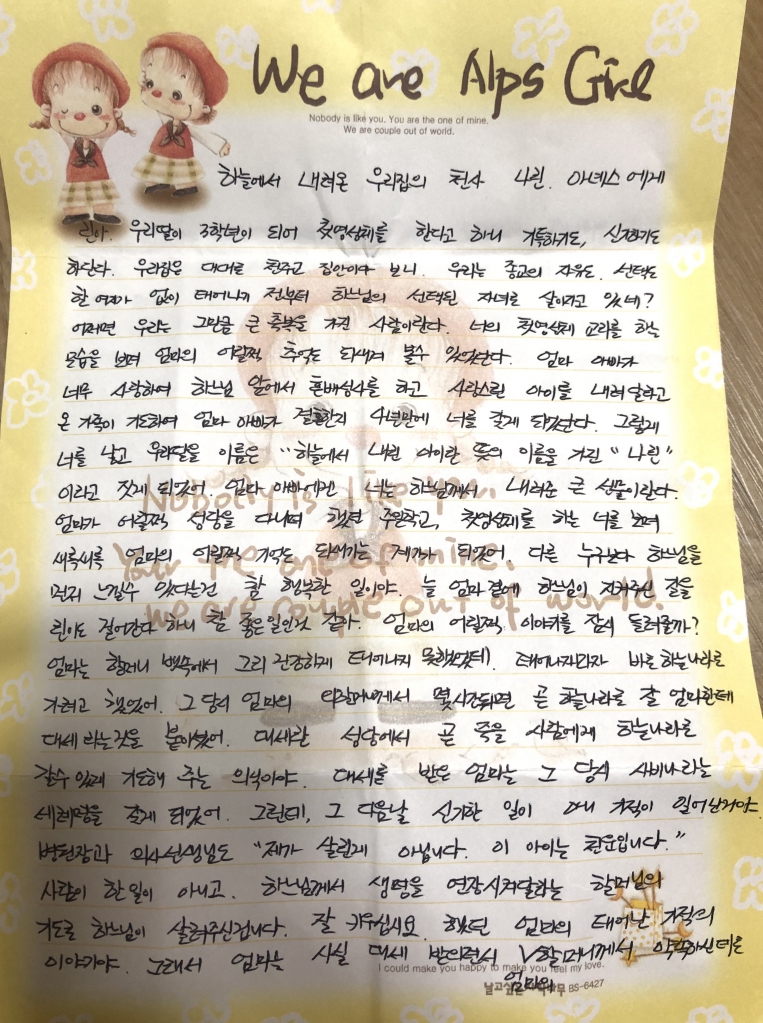 We are Alps Girl
Nobody is like you. You are the one of mine.
We are couple out of world.
하늘에서 내려온 우리집의 천사 나린. 아녜스에게
린아. 우리딸이 3학년이 되어 첫영성체를 한다고 하니 기특하기도, 신기하기도
하단다. 우리집은 대대로 천주교 집안이다 보니. 우리는 종교의 자유도. 선택도
할 여지가 없이 태어나기 전부터 하느님의 선택된 자녀로 살아가고 있네?
어쩌면 우리는 그만큼 큰 축복을 가진 사람이란다. 너의 첫영성체 교리를 하는
모습을 보며 엄마의 어릴적 추억도 되새겨 볼수 있었단다. 엄마 아빠가
너무 사랑하여 하느님 앞에서 혼배성사를 하고 사랑스런 아이를 내려달라고
온 가족이 기도하여 엄마 아빠가 결혼한지 4년만에 너를 갖게 되었단다. 그렇게
너를 낳고 우리딸을 이름은 "하늘에서 내린 아이란 뜻의 이름을 가진 "나린"
이라고 짓게 되었어 엄마 아빠에겐 너는 하느님께서 내려준 큰 선물이란다.
엄마가 어릴적 성당을 다니며 했던 주일학교, 첫영성체를 하는 너를 보며
새록새록 엄마의 어릴적 기억도 되새기는 계기가 되었어. 다른 누구보다 하느님을
먼저 느낄수 있다는건 참 행복한 일이야. 늘 엄마곁에 하느님이 지켜주신 길을
린이도 걸어간다 하니 참 좋은일인것 같아. 엄마의 어릴적 이야기를 잠시 들려줄까?
엄마는 할머니 뱃속에서 그리 건강하게 태어나지 못했었대. 태어나자마자 바로 하늘나라로
가려고 했었어. 그 당시 엄마의 외할머니께서 몇시간되면 곧 하늘나라로 갈 엄마한테
대세 라는것을 붙이셨어. 대세란 성당에서 곧 죽을 사람에게 하늘나라로
갈수 있게 기도해 주는 의식이야. 대세를 받은 엄마는 그 당시 사비나라는
세례명을 갖게 되었어. 그런데, 그 다음날 신기한 일이 아니 기적이 일어난거야.
병원장과 의사선생님도 "제가 살린게 아닙니다. 이 아이는 천운입니다."
사람이 한일이 아니고. 하느님께서 생명을 연장시켜달라는 할머님의
기도로 하느님이 살려주신겁니다. 잘 키우십시요. 했던 엄마의 태어난 기적의
이야기야. 그래서 엄마는 사실 대세 받으면서 V할머니께서 약속하신대로
엄마의
Nobody is like you.
You are the one of mine.
We are couple out of world.
I could make you happy to make you feel my love.
BS-6427